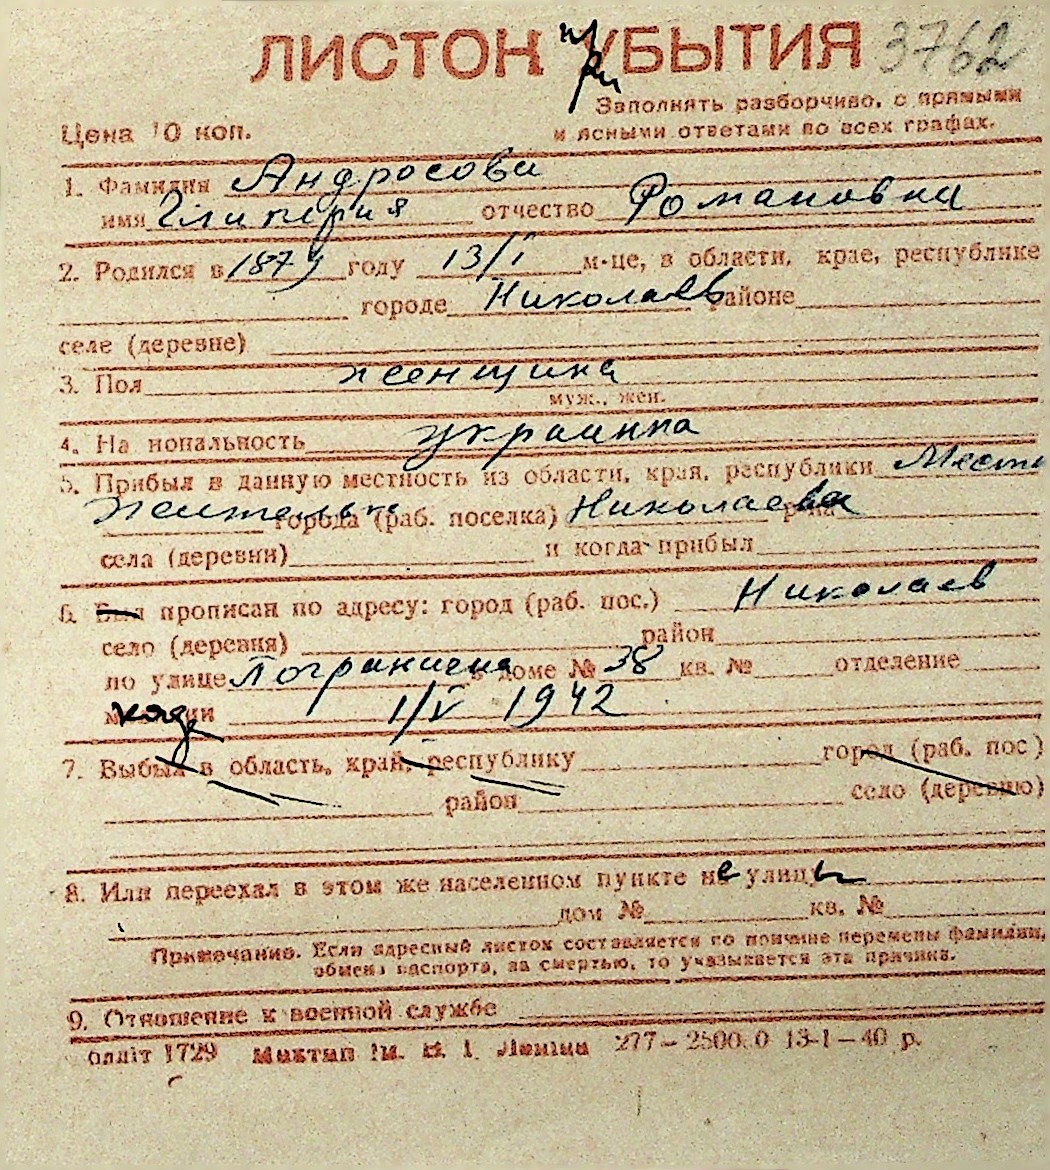 ЛИСТОК УБЫТИЯ 3762
при
Заполнять разборчиво, с прямыми
и ясными ответами по всех графах.
Цена 10 коп.
1. Фамилия Андросова
имя Гликерия отчество Романовна
2. Родился в 1879 году 13/I м-це, в области, крае, республике
городе Николаев районе
селе (деревне)
3. Пол женщина
муж., жен.
4. На иональность украинка
5. Прибыл в данную местность из области, края, республики Местн
жительн города (раб. поселка) Николаева р-на
села (деревни) и когда прибыл
6. Был прописан по адресу: город (раб. пос.) Николаев
село (деревня) район
по улице Погранична в доме № 38 кв. № отделение
когда 1/V 1942
7. Выбыл в область, край, республику город (раб. пос)
район село (деревню)
8. Или переехал в этом же населенном пункте не улицы
дом № кв. №
Примечание. Если адресный листок составляется по причине перемены фамилии,
обмена паспорта, за смертью, то указывается эта причина.
9. Отношение к военной службе
олліт 1729 ім. В. І. Леніна 277—2500.0 13-1—40 р.